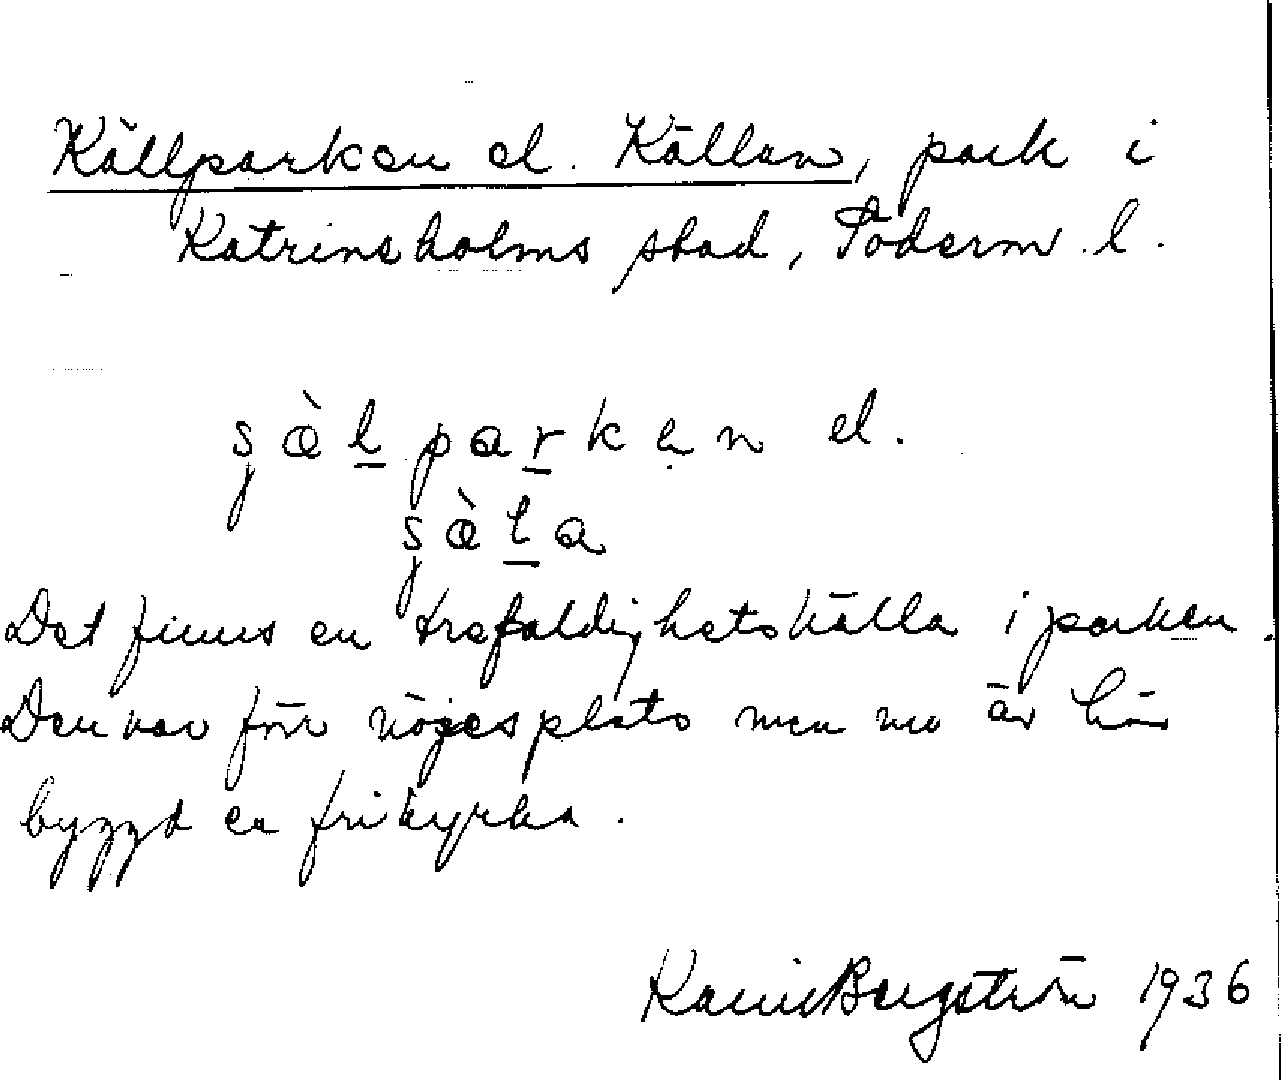 Källparken el. Källan, park i
Katrinsholms stad, Söderm. l.
şæ̀l̲par̲kẹn el.
şæ̀l̲a
Det finns en trefaldighetskälla i parken.
Den var förr nöjesplats men nu är här
byggd en frikyrka.
Karin Bergström 1936